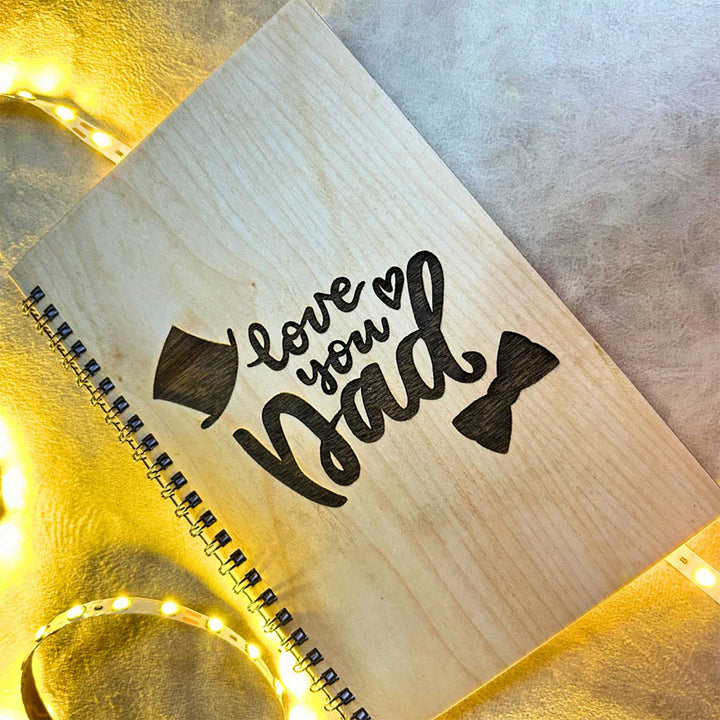 love
you
Dad